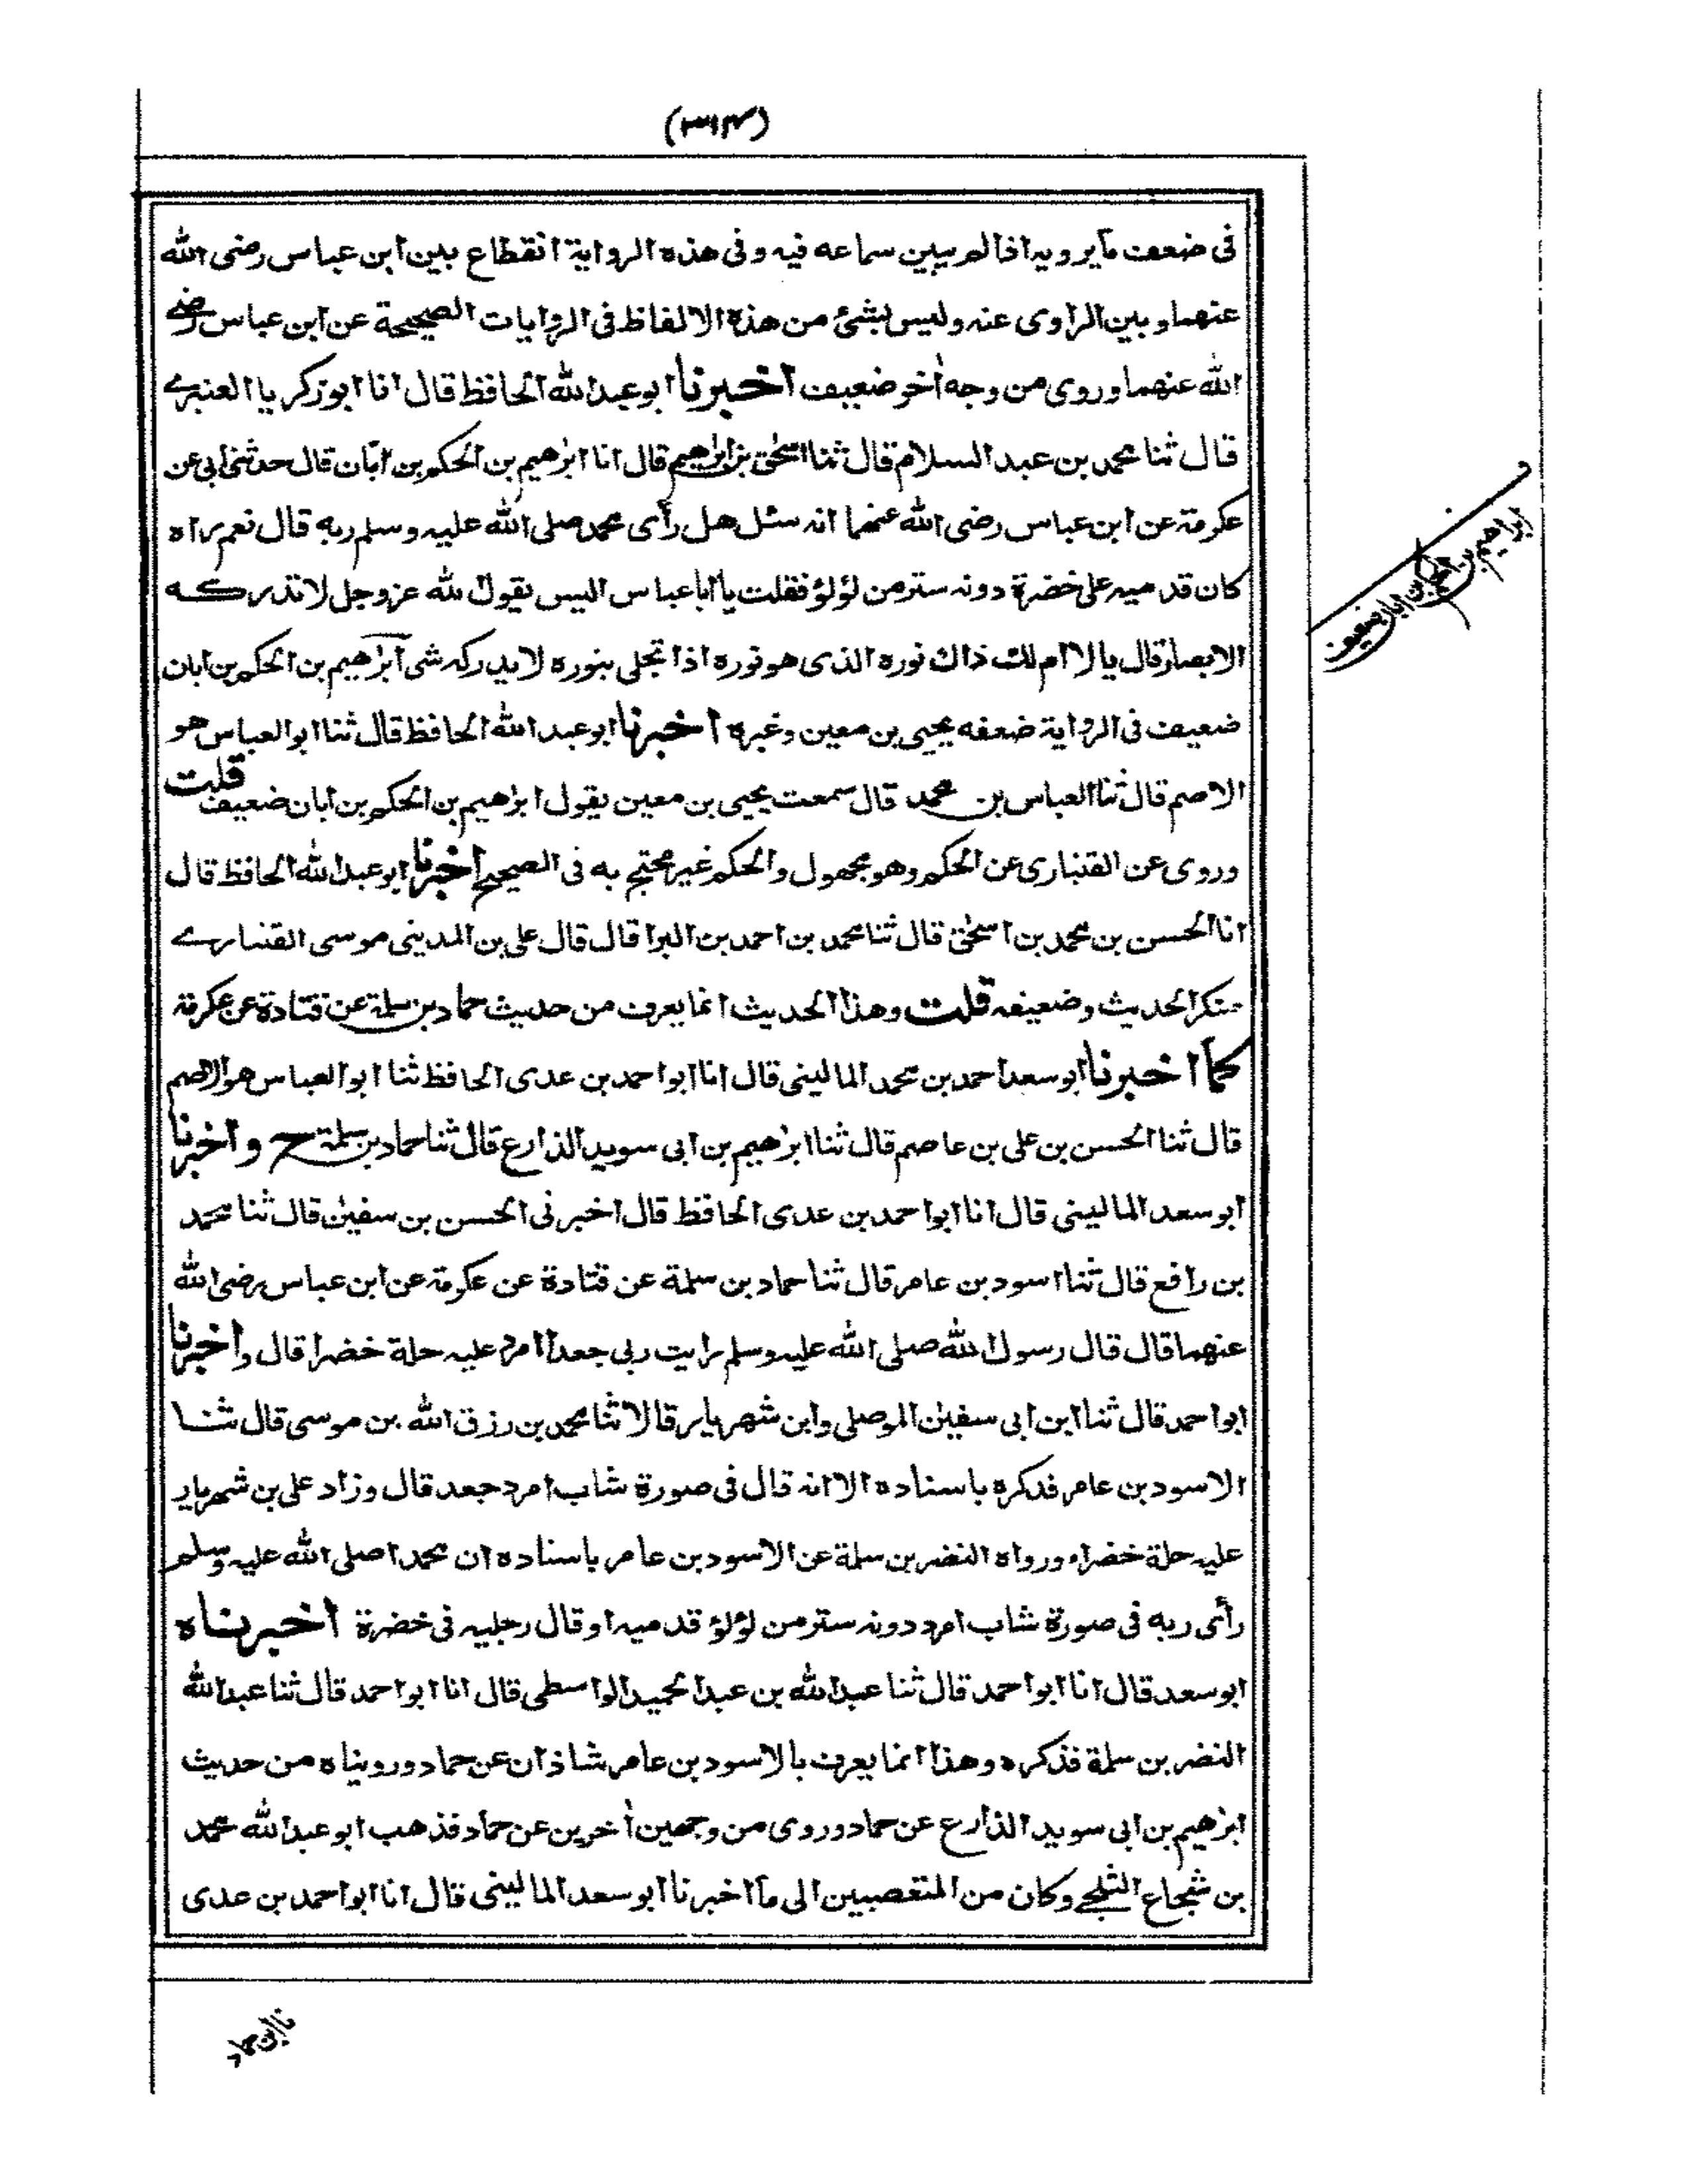 (٣١٣)
فى ضعف مايرويه اذا لم يبين سماعه فيه وفى هذه الرواية انقطاع بين ابن عباس رضى الله
عنهما وبين الراوى عنه وليس بشئ من هذه الالفاظ فى الروايات الصحيحة عن ابن عباس رضے
الله عنهما وروى من وجه اٰخر ضعيف اخبرنا ابو عبد الله الحافظ قال انا ابو زكريا العنبرے
قال ثنا محمد بن عبد السلام قال ثنا اسحٰق بن ابرٰهيم قال انا ابرٰهيم بن الحكم بن ابّان قال حدثنى ابى عن
عكرمة عن ابن عباس رضى الله عنهما انه سئل هل رأى محمد صلى الله عليه وسلم ربه قال نعم راه
كان قدميه على خضرة دونه ستر من لؤلؤ فقلت يا ابا عباس اليس يقول الله عزوجل لا تدركه
الابصار قال يا لا ام لك ذاك نوره الذى هو نوره اذا تجلى بنوره لا يدركه شى ابرٰهيم بن الحكم بن ابان
ضعيف فى الرواية ضعفه يحيى بن معين وغيره اخبرنا ابو عبد الله الحافظ قال ثنا ابو العباس هو
الاصم قال ثنا العباس بن محمد قال سمعت يحيى بن معين يقول ابرٰهيم بن الحكم بن ابان ضعيف قلت
وروى عن القنبارى عن الحكم وهو مجهول والحكم غير محتج به فى الصحيح اخبرنا ابو عبد الله الحافظ قال
انا الحسن بن محمد بن اسحٰق قال ثنا محمد بن احمد بن البرا قال قال على بن المدينى موسى القنبارے
منكر الحديث وضعيفه قلت وهذا الحديث انما يعرف من حديث حماد بن سلمة عن قتادة عن عكرمة
كما اخبرنا ابو سعد احمد بن محمد المالينى قال انا ابو احمد بن عدى الحافظ ثنا ابو العباس هو الاصم
قال ثنا الحسن بن على بن عاصم قال ثنا ابرٰهيم بن ابى سويد الذارع قال ثنا حماد بن سلمة ح واخبرنا
ابو سعد المالينى قال انا ابو احمد بن عدى الحافظ قال اخبرنى الحسن بن سفيٰن قال ثنا محمد
بن رافع قال ثنا اسود بن عامر قال ثنا حماد بن سلمة عن قتادة عن عكرمة عن ابن عباس رضى الله
عنهما قال قال رسول الله صلى الله عليه وسلم رايت ربى جعدا امرد عليه حلة خضرا قال واخبرنا
ابو احمد قال ثنا ابن ابى سفيٰن الموصلى وابن شهريار قالا ثنا محمد بن رزق الله بن موسى قال ثنا
الاسود بن عامر فذكره باسناده الا انه قال فى صورة شاب امرد جعد قال وزاد على بن شهريار
عليه حلة خضراء ورواه النضر بن سلمة عن الاسود بن عامر باسناده ان محمدا صلى الله عليه وسلم
رأى ربه فى صورة شاب امرد دونه ستر من لؤلؤ قدميه او قال رجليه فى خضرة اخبرناه
ابو سعد قال انا ابو احمد قال ثنا عبد الله بن عبد الحميد الواسطى قال انا ابو احمد قال ثنا عبد الله
النضر بن سلمة فذكره وهذا انما يعرف بالاسود بن عامر شاذان عن حماد ورويناه من حديث
ابرٰهيم بن ابى سويد الذارع عن حماد وروى من وجهين اٰخرين عن حماد فذهب ابو عبد الله محمد
بن شجاع الثلجے وكان من المتعصبين الى ما اخبرنا ابو سعد المالينى قال انا ابو احمد بن عدى
ابراهيم بن الحكم بن ابان ضعيف